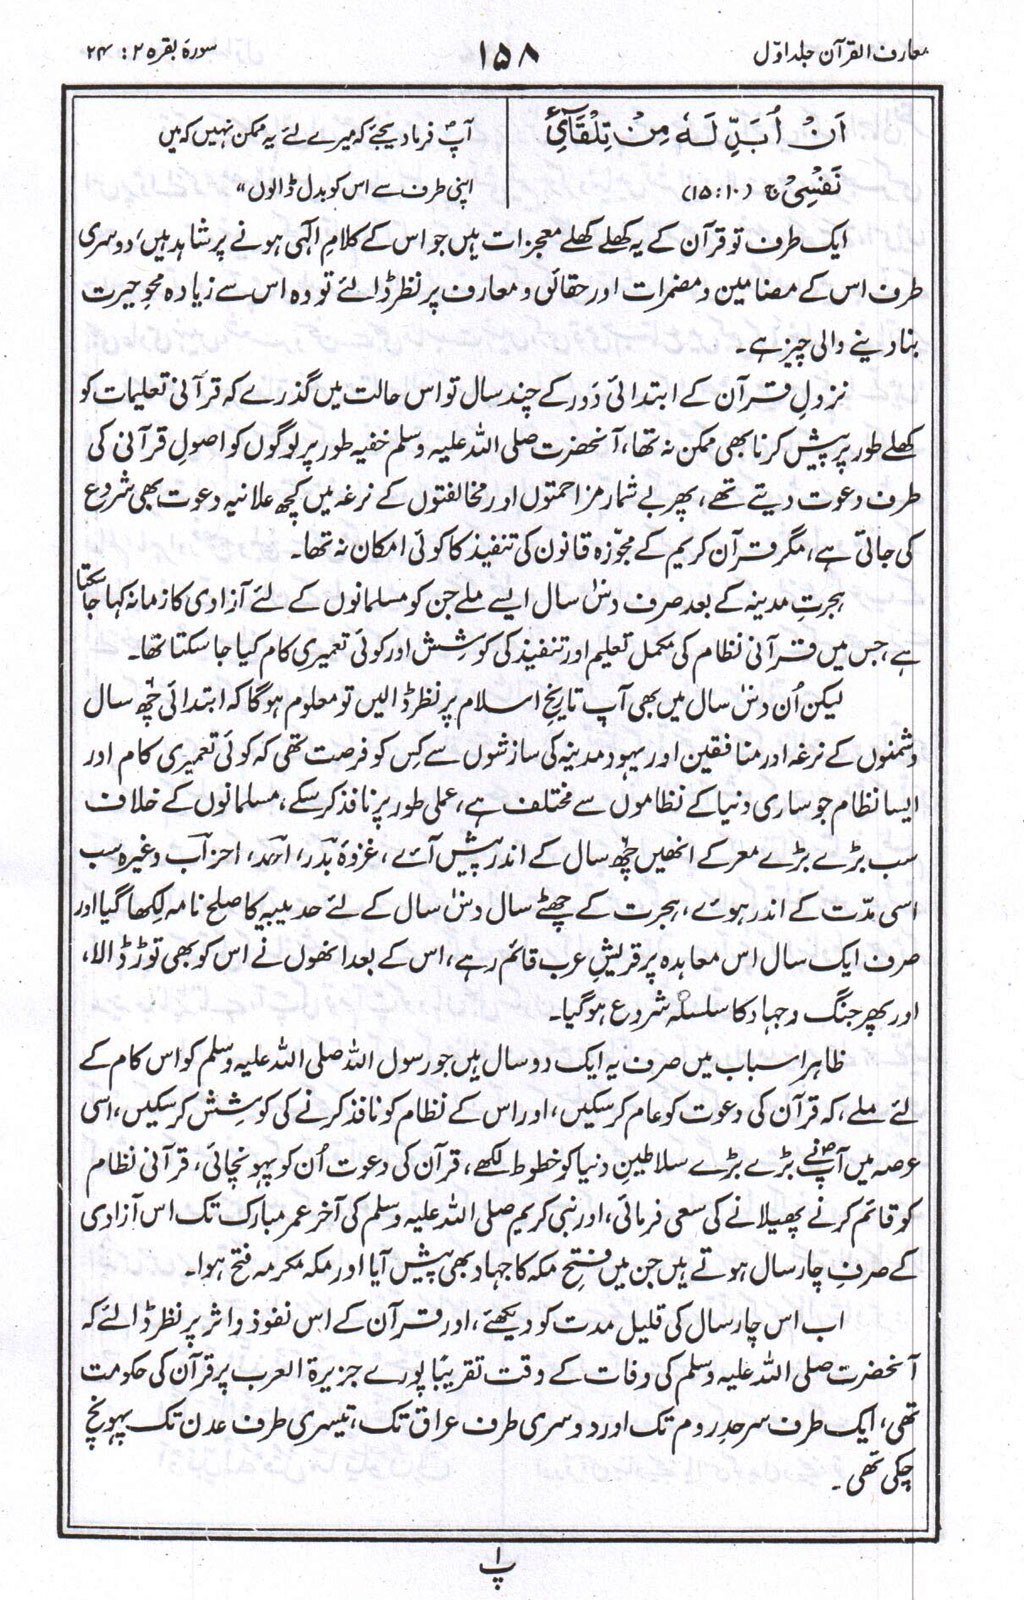 معارف القرآن جلد اوّل
۱۵۸
سورۂ بقرہ ۲ : ۲۴
اَنْ اُبَدِّلَهٗ مِنْ تِلْقَآئِ
نَفْسِیْ ج (۱۵:۱۰)
آپؐ فرما دیجئے کہ میرے لئے یہ ممکن نہیں کہ میں
اپنی طرف سے اس کو بدل ڈالوں"
ایک طرف تو قرآن کے یہ کھلے کھلے معجزات ہیں جو اس کے کلامِ الٰہی ہونے پر شاہد ہیں، دوسری
طرف اس کے مضامین و مضمرات اور حقائق و معارف پر نظر ڈالئے تو وہ اس سے زیادہ محوِ حیرت
بنا دینے والی چیز ہے۔
نزولِ قرآن کے ابتدائی دَور کے چند سال تو اس حالت میں گذرے کہ قرآنی تعلیمات کو
کھلے طور پر پیش کرنا بھی ممکن نہ تھا، آنحضرت صلی اللہ علیہ وسلم خفیہ طور پر لوگوں کو اصولِ قرآنی کی
طرف دعوت دیتے تھے، پھر بے شمار مزاحمتوں اور مخالفتوں کے نرغہ میں کچھ علانیہ دعوت بھی شروع
کی جاتی ہے، مگر قرآن کریم کے مجوّزہ قانون کی تنفیذ کا کوئی امکان نہ تھا۔
ہجرتِ مدینہ کے بعد صرف دسؔ سال ایسے ملے جن کو مسلمانوں کے لئے آزادی کا زمانہ کہا جا سکتا
ہے، جس میں قرآنی نظام کی مکمل تعلیم اور تنفیذ کی کوشِش اور کوئی تعمیری کام کیا جا سکتا تھا۔
لیکن اُن دسؔ سال میں بھی آپ تاریخِ اسلام پر نظر ڈالیں تو معلوم ہوگا کہ ابتدائی چھؔ سال
دشمنوں کے نرغہ اور منافقین اور یہود مدینہ کی سازشوں سے کِس کو فرصت تھی کہ کوئی تعمیری کام اور
ایسا نظام جو ساری دنیا کے نظاموں سے مختلف ہے، عملی طور پر نافذ کر سکے، مسلمانوں کے خلاف
سب بڑے بڑے معرکے انھیں چھؔ سال کے اندر پیش آئے، غزوۂ بدر، احد، احزاب وغیرہ سب
اسی مدّت کے اندر ہوئے، ہجرت کے چھٹے سال دسؔ سال کے لئے حدیبیہ کا صلح نامہ لکھا گیا اور
صرف ایک سال اس معاہدہ پر قریشِ عرب قائم رہے، اس کے بعد انھوں نے اس کو بھی توڑ ڈالا،
اور پھر جنگ و جہاد کا سلسلہ شروع ہو گیا۔
ظاہر اسباب میں صرف یہ ایک دو سال ہیں جو رسول اللہ صلی اللہ علیہ وسلم کو اس کام کے
لئے ملے، کہ قرآن کی دعوت کو عام کر سکیں، اور اس کے نظام کو نافذ کرنے کی کوشِش کر سکیں، اسی
عرصہ میں آپؐ نے بڑے بڑے سلاطینِ دنیا کو خطوط لکھے، قرآن کی دعوت اُن کو پہونچائی، قرآنی نظام
کو قائم کرنے پھیلانے کی سعی فرمائی، اور نبی کریم صلی اللہ علیہ وسلم کی آخر عمر مبارک تک اس آزادی
کے صرف چار سال ہوتے ہیں جن میں فتحِ مکہ کا جہاد بھی پیش آیا اور مکہ مکرمہ فتح ہوا۔
اب اس چار سال کی قلیل مدت کو دیکھئے، اور قرآن کے اس نفوذ و اثر پر نظر ڈالئے کہ
آنحضرت صلی اللہ علیہ وسلم کی وفات کے وقت تقریبًا پورے جزیرۃ العرب پر قرآن کی حکومت
تھی، ایک طرف سرحدِ روم تک اور دوسری طرف عراق تک، تیسری طرف عدن تک پہونچ
چکی تھی۔
پ ۱